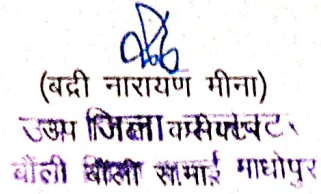 (बद्री नारायण मीना)
उप जिला कलेक्टर
बौंली बौंली स.माई माधोपुर